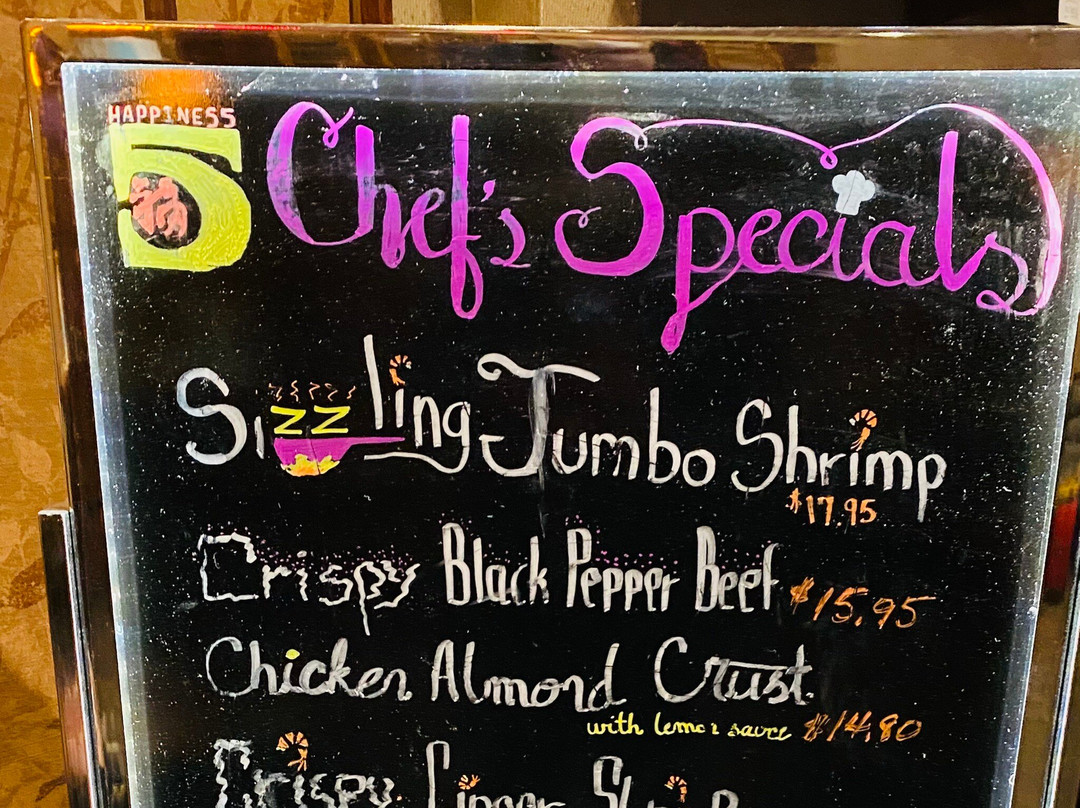 HAPPINESS
5 Chef's Specials
福
Sizzling Jumbo Shrimp
$17.95
Crispy Black Pepper Beef $15.95
Chicken Almond Crust
with lemon sauce $14.80
Crispy